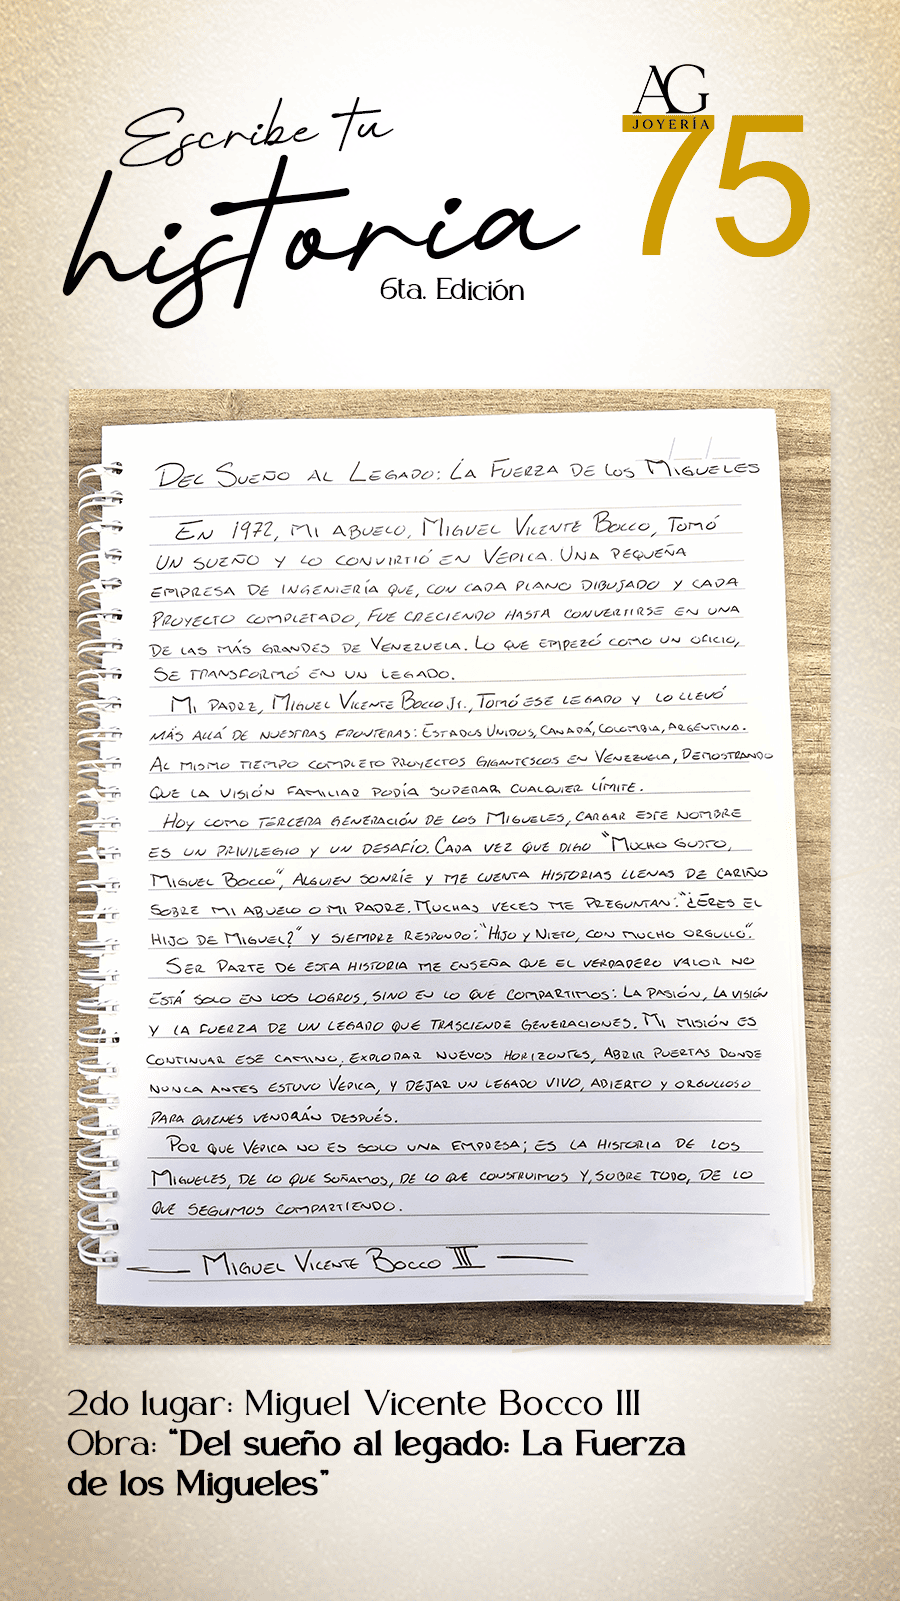 Escribe tu
historia
6ta. Edición
AG
JOYERÍA
75
DEL SUEÑO AL LEGADO: LA FUERZA DE LOS MIGUELES
EN 1972, MI ABUELO, MIGUEL VICENTE BOCCO, TOMÓ
UN SUEÑO Y LO CONVIRTIÓ EN VEPICA. UNA PEQUEÑA
EMPRESA DE INGENIERÍA QUE, CON CADA PLANO DIBUJADO Y CADA
PROYECTO COMPLETADO, FUE CRECIENDO HASTA CONVERTIRSE EN UNA
DE LAS MÁS GRANDES DE VENEZUELA. LO QUE EMPEZÓ COMO UN OFICIO,
SE TRANSFORMÓ EN UN LEGADO.
MI PADRE, MIGUEL VICENTE BOCCO Jr., TOMÓ ESE LEGADO Y LO LLEVÓ
MÁS ALLÁ DE NUESTRAS FRONTERAS: ESTADOS UNIDOS, CANADÁ, COLOMBIA, ARGENTINA.
AL MISMO TIEMPO COMPLETO PROYECTOS GIGANTESCOS EN VENEZUELA, DEMOSTRANDO
QUE LA VISIÓN FAMILIAR PODÍA SUPERAR CUALQUIER LÍMITE.
HOY COMO TERCERA GENERACIÓN DE LOS MIGUELES, CARGAR ESTE NOMBRE
ES UN PRIVILEGIO Y UN DESAFÍO. CADA VEZ QUE DIGO "MUCHO GUSTO,
MIGUEL BOCCO", ALGUIEN SONRÍE Y ME CUENTA HISTORIAS LLENAS DE CARIÑO
SOBRE MI ABUELO O MI PADRE. MUCHAS VECES ME PREGUNTAN: "¿ERES EL
HIJO DE MIGUEL?" Y SIEMPRE RESPONDO: "HIJO Y NIETO, CON MUCHO ORGULLO".
SER PARTE DE ESTA HISTORIA ME ENSEÑA QUE EL VERDADERO VALOR NO
ESTÁ SOLO EN LOS LOGROS, SINO EN LO QUE COMPARTIMOS: LA PASIÓN, LA VISIÓN
Y LA FUERZA DE UN LEGADO QUE TRASCIENDE GENERACIONES. MI MISIÓN ES
CONTINUAR ESE CAMINO, EXPLORAR NUEVOS HORIZONTES, ABRIR PUERTAS DONDE
NUNCA ANTES ESTUVO VEPICA, Y DEJAR UN LEGADO VIVO, ABIERTO Y ORGULLOSO
PARA QUIENES VENDRÁN DESPUÉS.
POR QUE VEPICA NO ES SOLO UNA EMPRESA; ES LA HISTORIA DE LOS
MIGUELES, DE LO QUE SOÑAMOS, DE LO QUE CONSTRUIMOS Y, SOBRE TODO, DE LO
QUE SEGUIMOS COMPARTIENDO.
MIGUEL VICENTE BOCCO III
2do lugar: Miguel Vicente Bocco III
Obra: "Del sueño al legado: La Fuerza
de los Migueles"